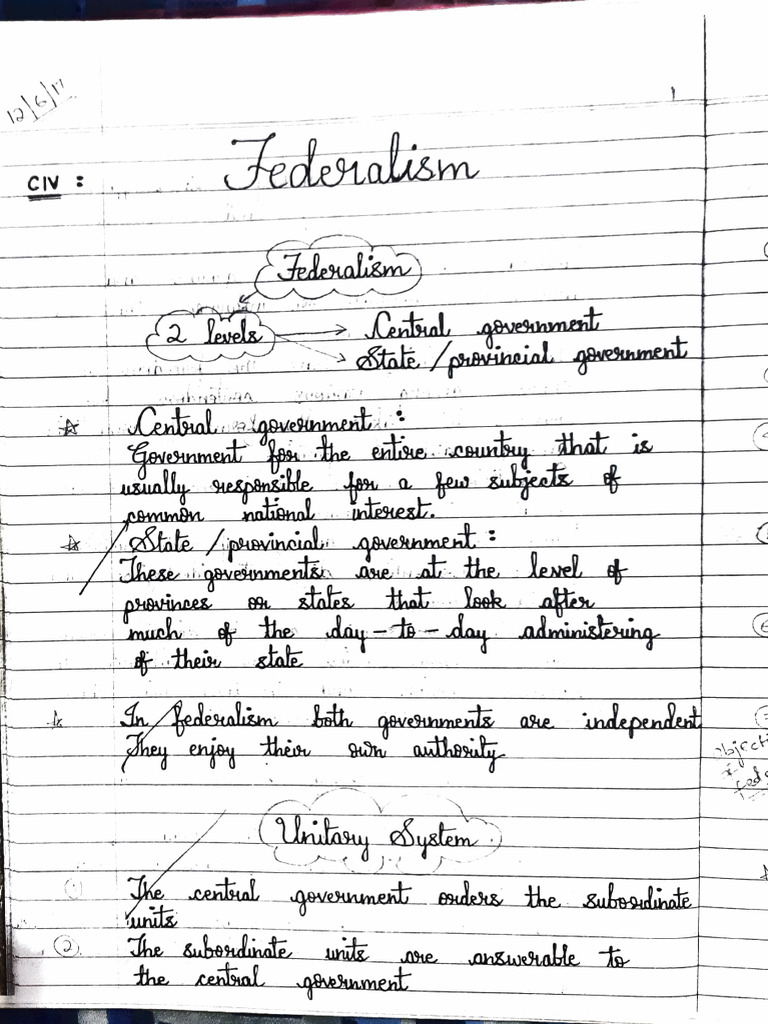 1
CIV :
Federalism
Federalism
2 levels
Central government
State / provincial government
Central government :
Government for the entire country that is
usually responsible for a few subjects of
common national interest.
State / provincial government :
These governments are at the level of
provinces or states that look after
much of the day - to - day administering
of their state
In federalism both governments are independent
They enjoy their own authority
Unitary System
① The central government orders the subordinate
units
② The subordinate units are answerable to
the central government